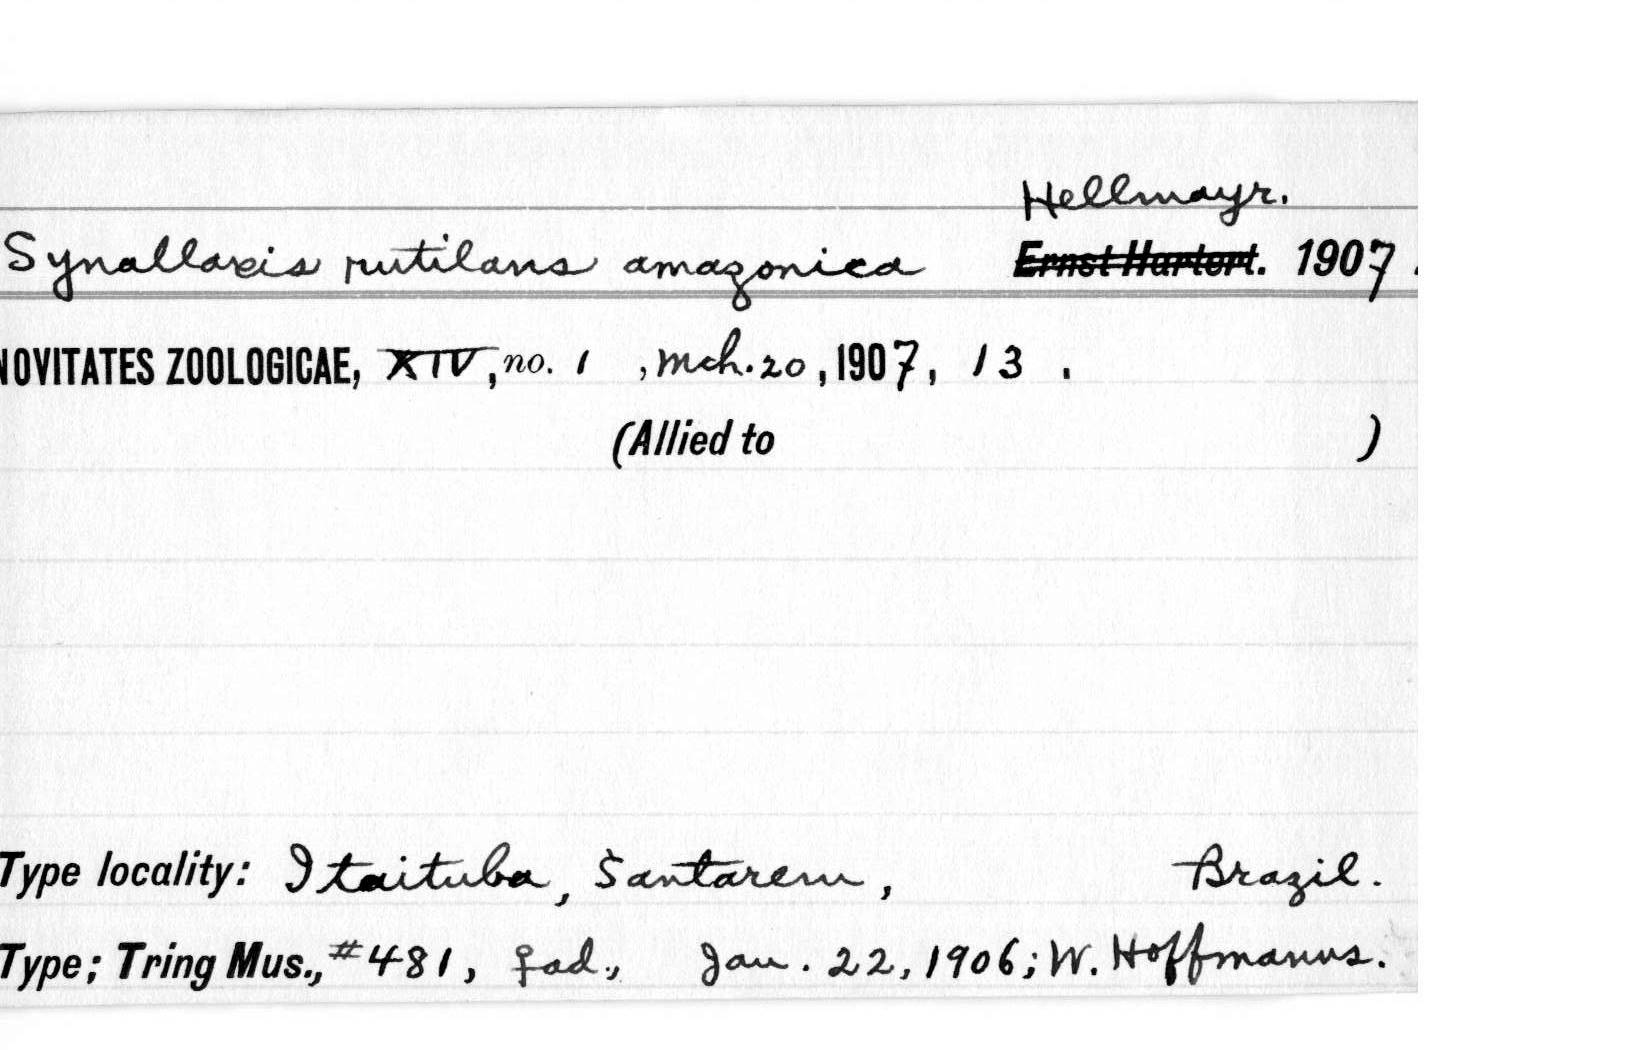 Hellmayr.
Synallaxis rutilans amazonica Ernst Hartert. 1907.
NOVITATES ZOOLOGICAE, XIV, no. 1, Mch. 20, 1907, 13.
(Allied to )
Type locality: Itaituba, Santarem, Brazil.
Type; Tring Mus., #481, ♀ ad., Jan. 22, 1906; W. Hoffmanns.